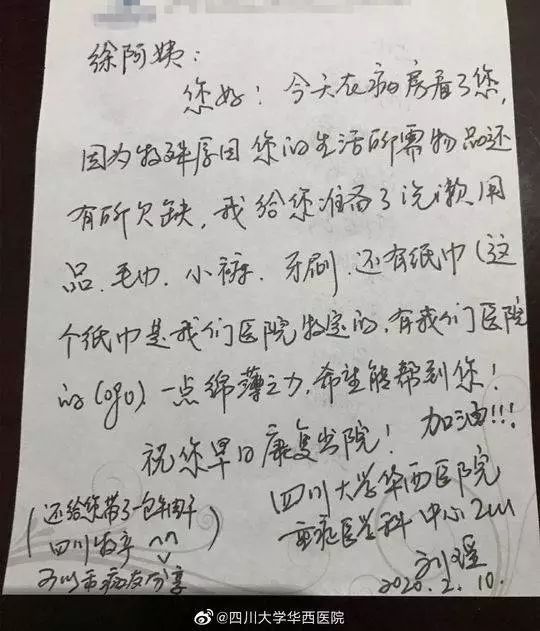 徐阿姨：
您好！今天在病房看了您，
因为特殊原因您的生活所需物品还
有所欠缺，我给您准备了洗漱用
品、毛巾、小裤、牙刷，还有纸巾（这
个纸巾是我们医院特定的，有我们医院
的logo），一点绵薄之力，希望能帮到您！
祝您早日康复出院！加油!!!
四川大学华西医院
重症医学科 中心ICU
2020.2.10.
（还给您带了一包牛肉干
四川特产
可以和病友分享）
@四川大学华西医院